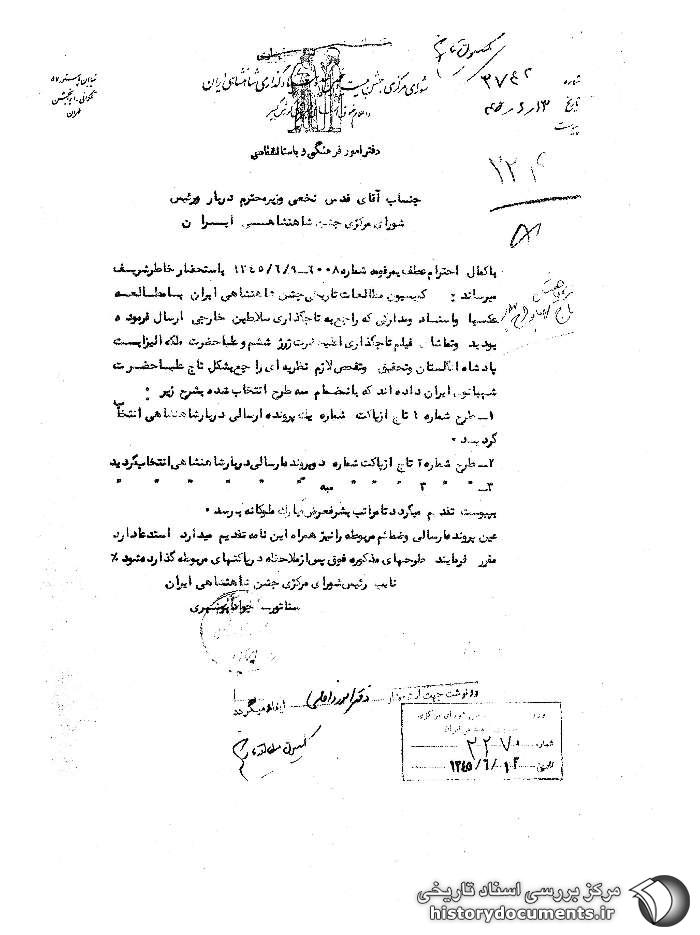 شماره ۳۷۴۲
تاریخ ۴۵،۶،۱۳
پیوست
خیابان
تهران
شورای مرکزی جشن شاهنشاهی ایران
دفتر امور فرهنگی و باستانشناسی
جناب آقای قدس نخعی وزیر محترم دربار و رئیس
شورای مرکزی جشن شاهنشاهی ایران
باکمال احترام عطف بمرقومه شماره ۶۰۰۸ـ۱۳۴۵/۶/۹ باستحضار خاطر شریف
میرساند : کمیسیون مطالعات تاریخی جشن شاهنشاهی ایران بامطالعه
عکسها واسناد ومدارکی که راجع به تاجگذاری سلاطین خارجی ارسال فرموده
بودید وتماشای فیلم تاجگذاری اعلیحضرت ژرژ ششم وعلیاحضرت ملکه الیزابت
پادشاه انگلستان وتحقیق وتفحص لازم نظریه ای راجع بشکل تاج علیاحضرت
شهبانوی ایران داده اند که بانضمام سه طرح انتخاب شده بشرح زیر :
۱ـ طرح شماره ۱ تاج ازپاکت شماره یک پرونده ارسالی دربار شاهنشاهی انتخاب
گردید .
۲ـ طرح شماره ۲ تاج ازپاکت شماره دو پرونده ارسالی دربار شاهنشاهی انتخاب گردید
۳ـ " " ۳ " " " سه " " " " "
بپیوست تقدیم میگردد تامراتب بشرفعرض مبارک ملوکانه برسد .
عین پرونده ارسالی وضمائم مربوطه رانیز همراه این نامه تقدیم میدارد استدعادارد
مقرر فرمایند طرحهای مذکوره فوق پس ازملاحظه درپاکتهای مربوطه گذارده شود ٪
نایب رئیس شورای مرکزی جشن شاهنشاهی ایران
سناتور جواد بوشهری
رونوشت جهت دفتر امور داخلی ایفاد میگردد
شورای مرکزی
شماره ۳۲۷۰
تاریخ ۱۳۴۵/۶/۱۲
مرکز بررسی اسناد تاریخی
historydocuments.ir